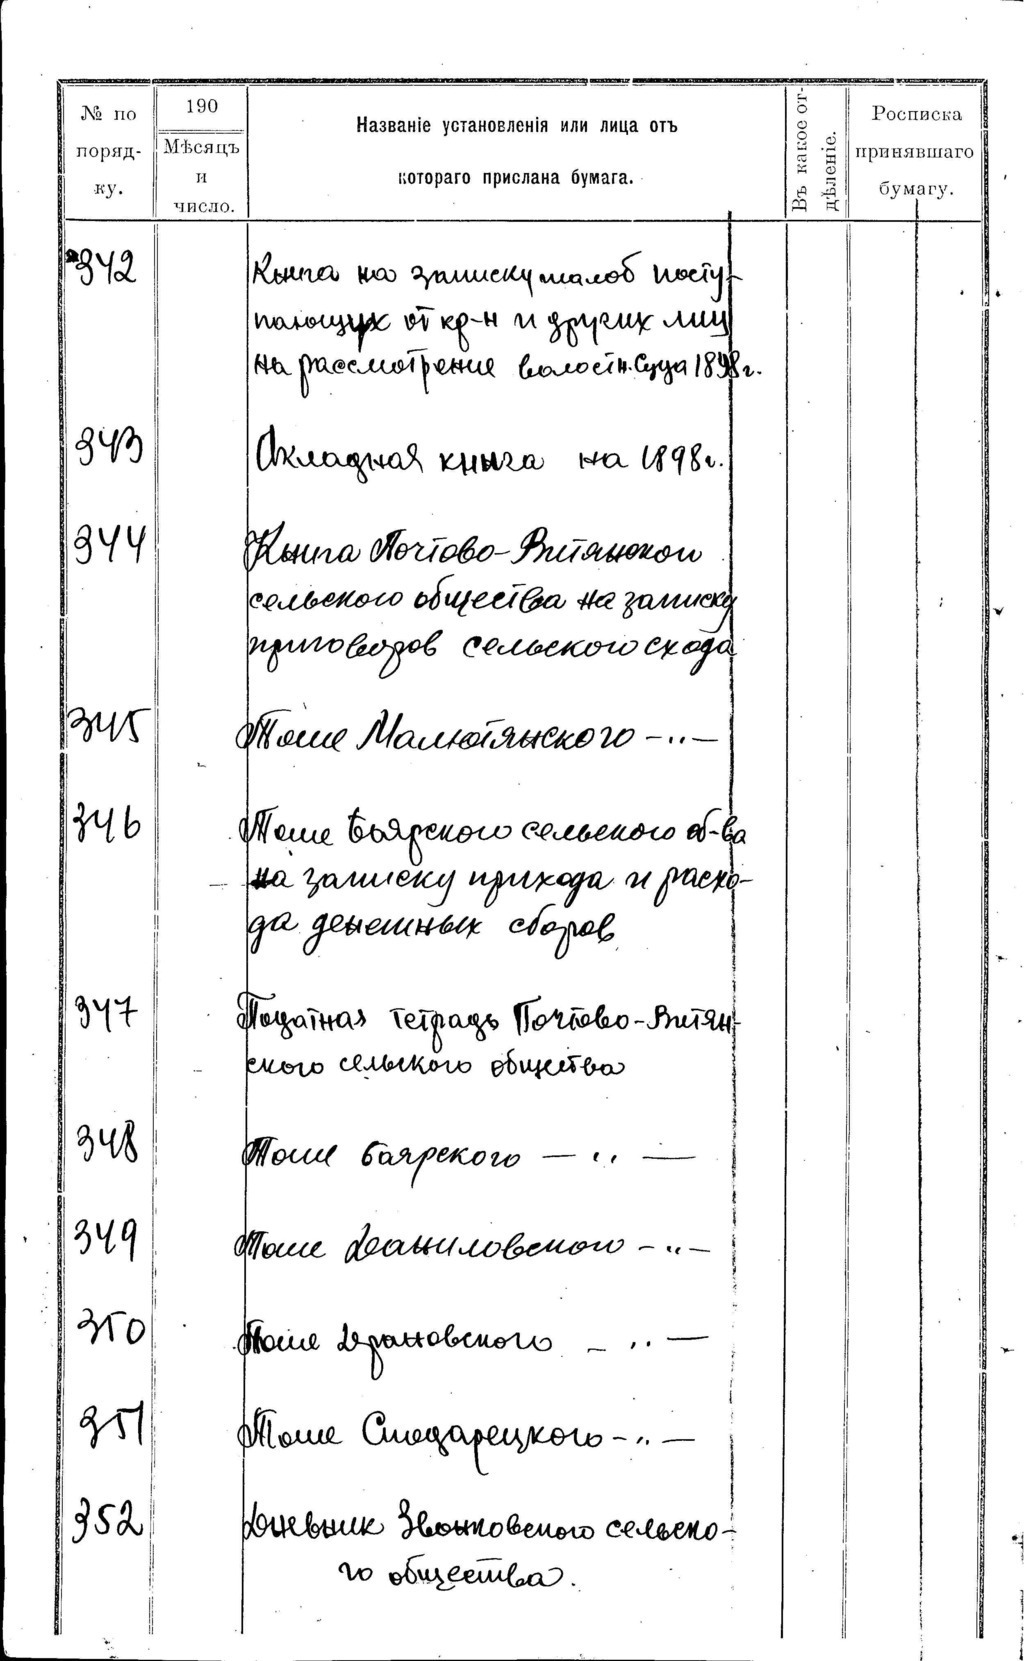 № по поряд-ку.
190
Мѣсяцъ и число.
Названіе установленія или лица отъ
котораго прислана бумага.
Въ какое от-дѣленіе.
Росписка принявшаго бумагу.
342 Книга на записку жалоб посту-
пающих от кр-н и других лиц
на рассмотрение волостн. Суда 1898г.
343 Окладная книга на 1898г.
344 Книга Почтово-Витянской
сельского общества на записку
приговоров сельского схода
345 Тоже Малютянского -"-
346 Тоже Боярского сельского об-ва
на записку прихода и расхо-
да денежных сборов
347 Податная тетрадь Почтово-Витян-
ского сельского общества
348 Тоже Боярского — " —
349 Тоже Даниловского -"-
350 Тоже - " —
351 Тоже -"-
352 Дневник Звонковского сельско-
го общества.